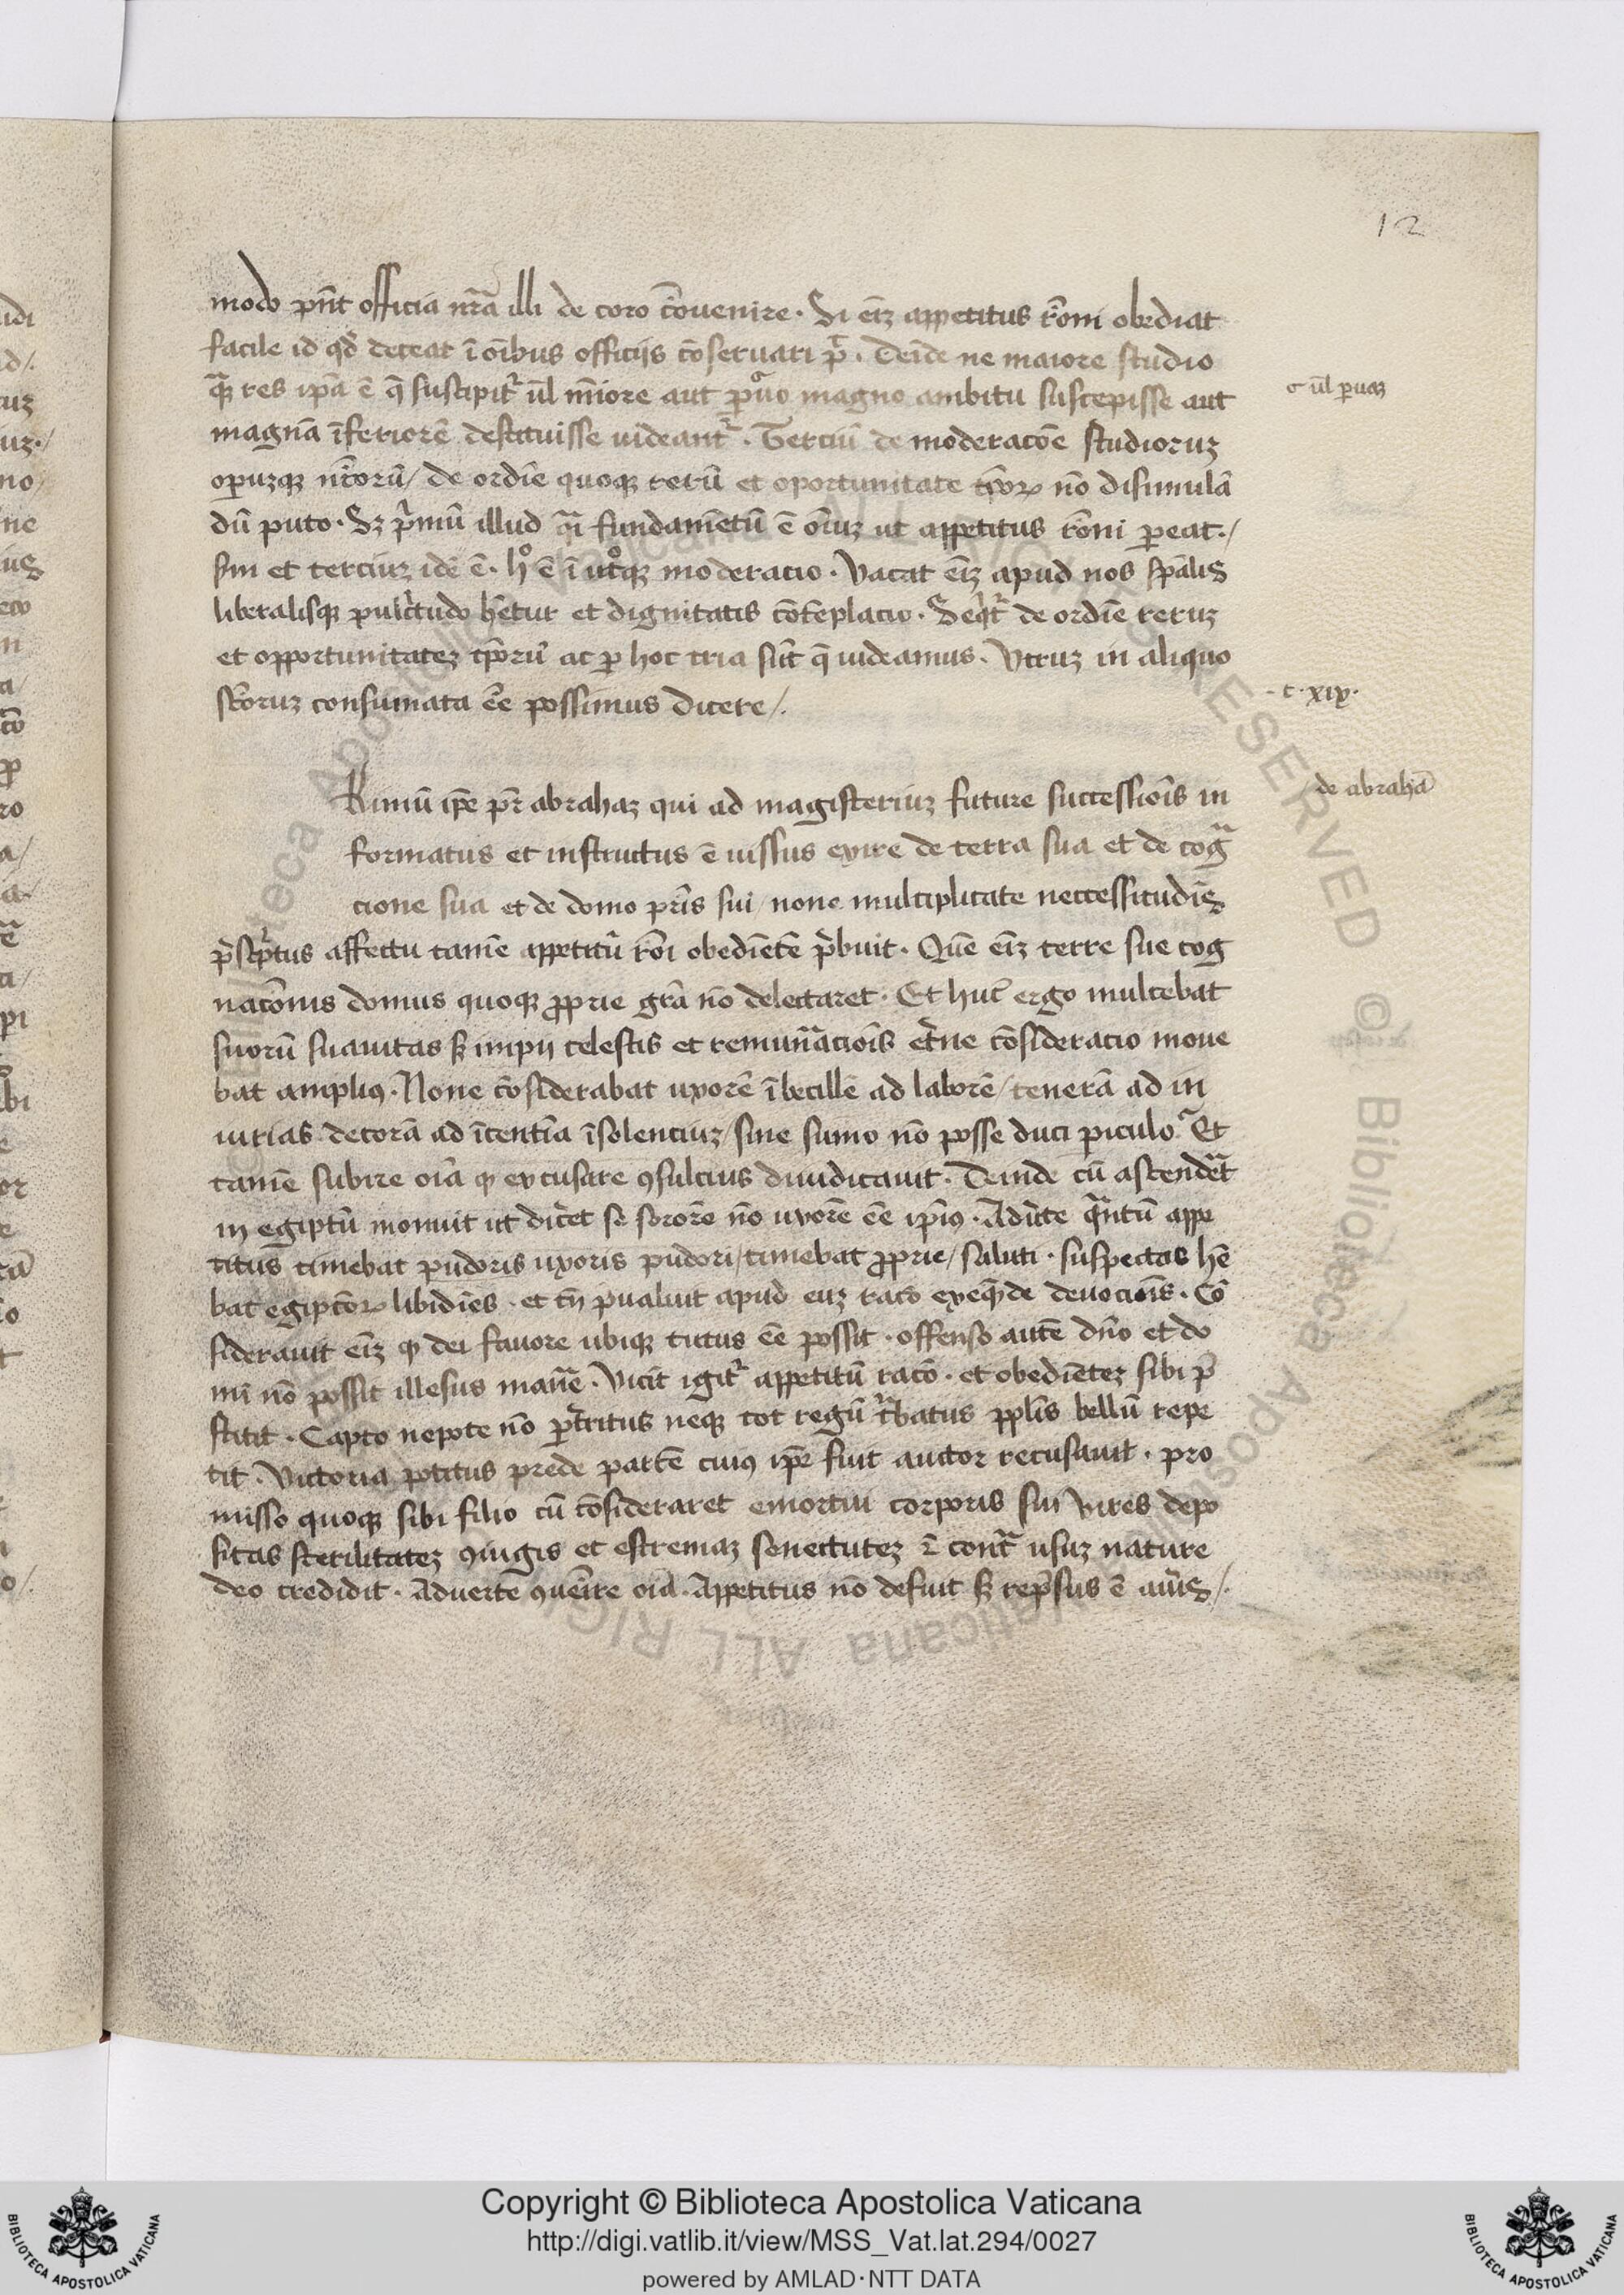 12
modo pn̄t officia nr̄a illi de coro cōuenire. Si em̄ appetitus rōni obediat
facile id qđ deceat ī oībus officijs cōseruari pt̄. Deīde ne maiore studio
qͣꝫ res ip̄a ē q̄ suscipit᷑ ul̄ mīore aut puo magno ambitu suscepisse aut
ul̄ puaꝫ
magnā īferiorē destituisse uideant᷑. Terciū de moderacōe studioruꝫ
operuꝫqꝫ nr̄orū / de ordīe quoqꝫ rerū et oportunitate tp̄oꝝ nō disimulā
dū puto. Sꝫ p̄mū illud qͣi fundamētū ē oīuꝫ ut appetitus rōni pareat./
sm et terciuꝫ idē ē. hͦ ē ī utͦqꝫ moderacio. Vacat em̄ apud nos sp̄alis
liberalisqꝫ pulcͥtudo hētur et dignitatis cōtēplacio. Seqͥt᷑ de ordīe reruꝫ
et opportunitateꝫ tp̄orū ac ꝑ hoc tria sūt q̄ uideamus. Vtruꝫ in aliquo
sc̄oruꝫ consumata eē possimus dicere/.
c. xix.
Rimū ip̄e pr̄ abrahaꝫ qui ad magisteriuꝫ future successiōis in
de abrahā
formatus et instructus ē iussus exire de terra sua et de cogͣ
cione sua et de domo pr̄is sui / none multiplicate neccessitudīs
p̄scͥptus affectu tamē appetitū rōi obediētē p̄buit. Quē em̄ terre sue cog
nacōnis domus quoqꝫ ꝓprie grā nō delectaret. Et hūc ergo mulcebat
suorū suauitas sꝫ impij celestis et remunͣaciōis etͤne cōsideracio moue
bat ampliꝰ. None cōsiderabat uxorē ībecillē ad laborē / tenerā ad in
iurias decorā ad īcentīa īsolenciuꝫ / sine sumo nō posse duci piculo. Et
tamē subire oīa qͣ excusare ꝯsulcius diiudicauit. Deinde cū ascendēt
in egiptū monuit ut dicēt se sororē nō uxorē eē ip̄iꝰ. Adute qͣntū appe
titus timebat pudoris uxoris pudori / timebat ꝓprie / saluti. suspectas hē
bat egipcioꝝ libidīes. et tn̄ pualuit apud euꝫ racō exeqͣde deuociōis. Cō
siderauit em̄ qͣ dei fauore ubiqꝫ tutus eē possit. offenso autē dn̄o et do
mi nō possit illesus manē. Vicit igit᷑ appetitū racō. et obediēteꝫ sibi p̄
stitit. Capto nepote nō ꝑtͤritus neqꝫ tot regū tͥbatus pplīs bellū repe
tit. Victoria potitus prede partē cuiꝰ ip̄e fuit auctor recusauit. pro
misso quoqꝫ sibi filio cū cōsideraret emortui corporis sui uires depo
sitas sterilitateꝫ ꝯiugis et estremaꝫ senectuteꝫ ⁊ contͣ usuꝫ nature
deo credidit. Aduerte ꝯuenīre oīa. Appetitus nō defuit sꝫ rep̄sus ē
Copyright © Biblioteca Apostolica Vaticana
http://digi.vatlib.it/view/MSS_Vat.lat.294/0027
powered by AMLAD·NTT DATA
BIBLIOTECA APOSTOLICA VATICANA
BIBLIOTECA APOSTOLICA VATICANA